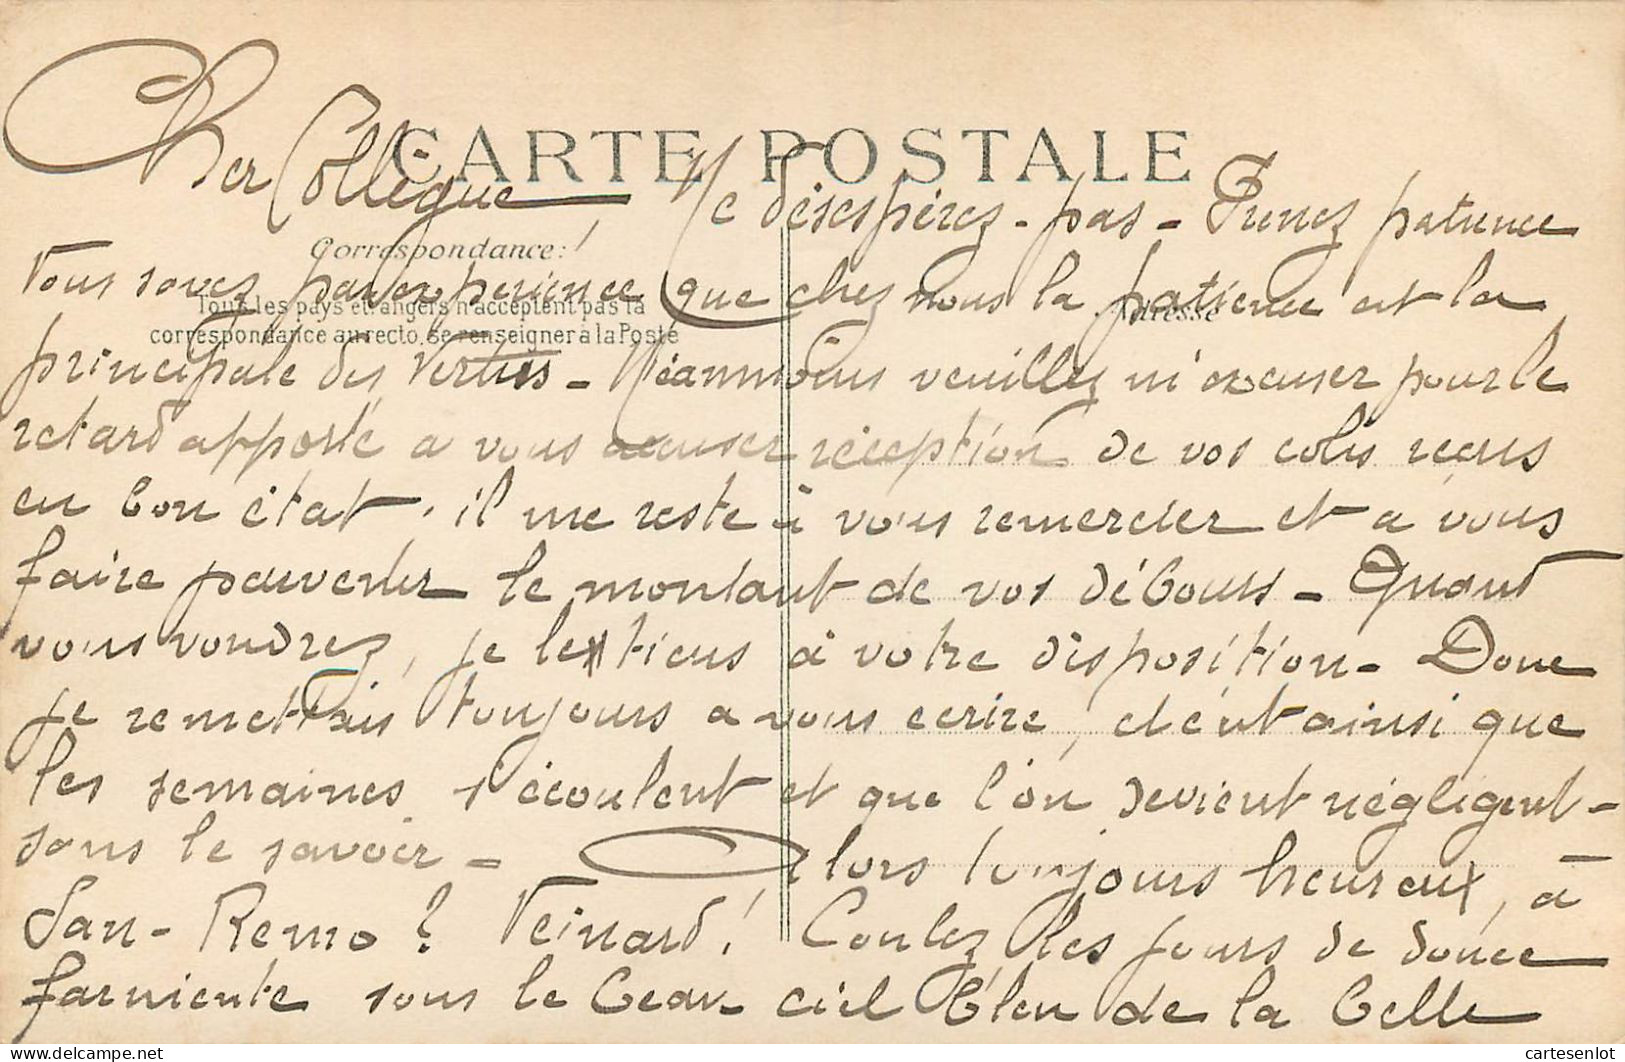 CARTE POSTALE
Cher Collègue Ne désespérez-pas - Prenez patience
Correspondance:
Vous savez par expérience que chez nous la patience est la
Tous les pays étrangers n'acceptent pas la
correspondance au recto, se renseigner à la Poste
Adresse
principale des Vertus - Néanmoins veuillez m'excuser pour le
retard apporté a vous accuser réception de vos colis reçus
en bon état. il me reste à vous remercier et a vous
faire parvenir le montant de vos débours - Quand
vous voudrez, je le tiens à votre disposition - Donc
je remettais toujours a vous ecrire, c'est ainsi que
les semaines s'écoulent et que l'on devient négligent -
sans le savoir - Alors toujours heureux, à
San-Remo? Veinard! Coulez les jours de douce
farniente sous le beau ciel bleu de la belle
cartesenlot